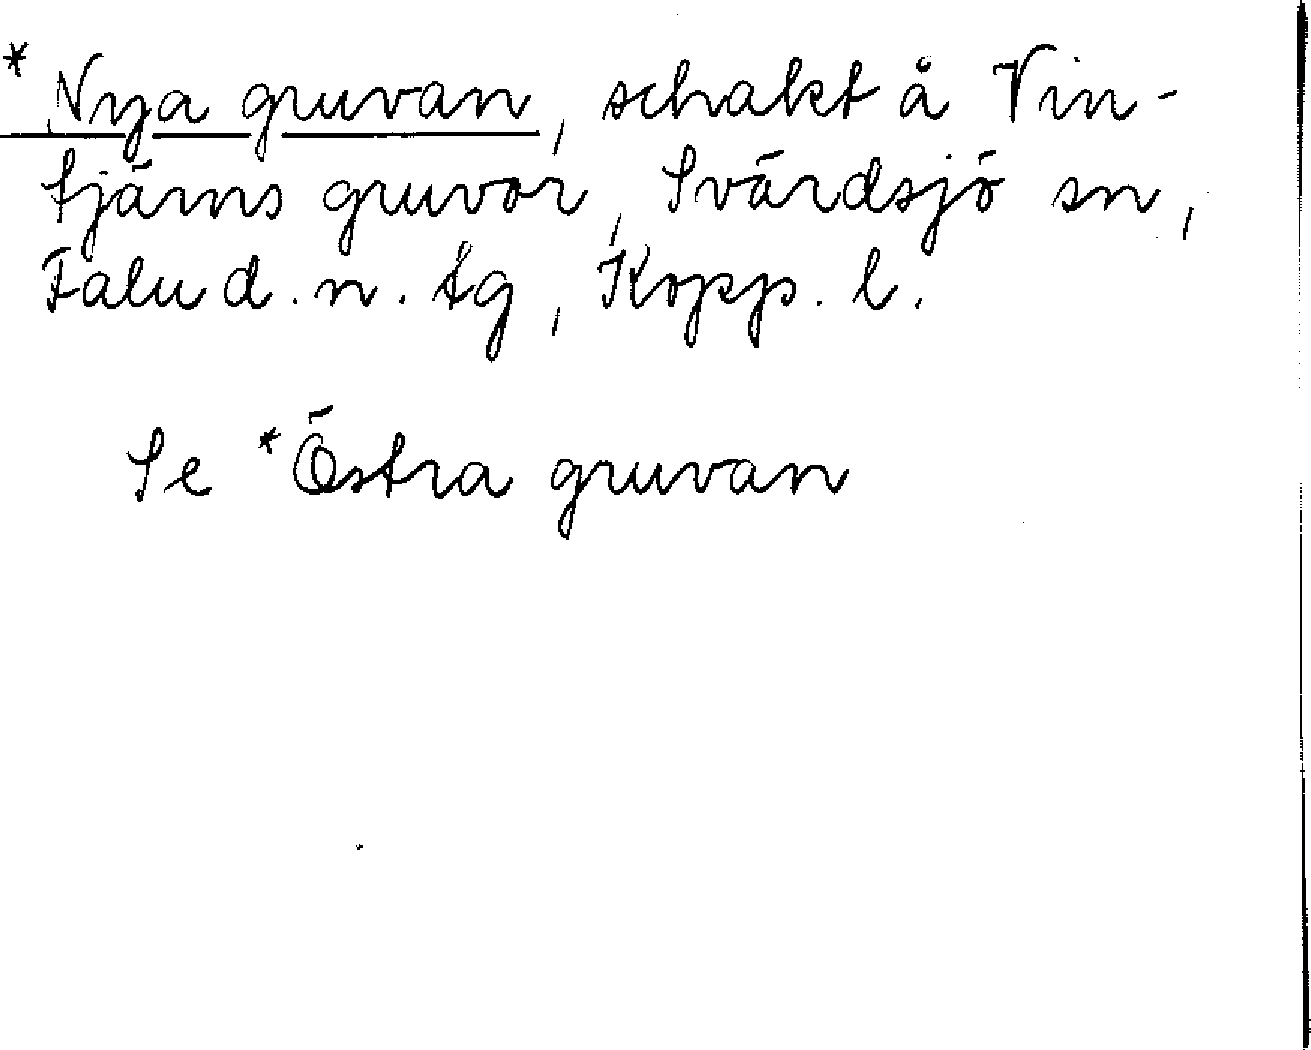 * Nya gruvan, schakt å Vin-
tjärns gruvor, Svärdsjö sn,
Falu d. n. tg, Kopp. l.
Se *Östra gruvan